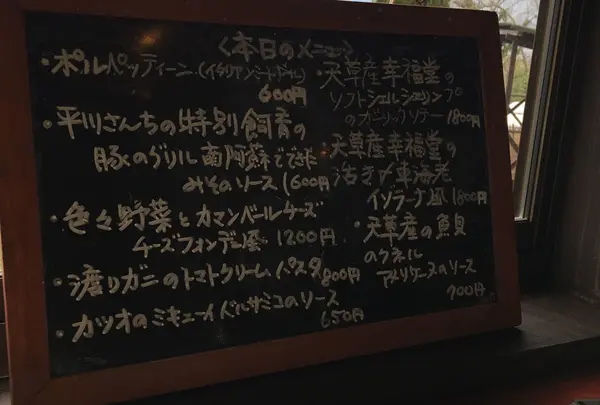 〈本日のメニュー〉
・ポルペッティーニ(イタリアンミートボール)
600円
・平川さんちの特別飼育の
豚のグリル南阿蘇でできた
みそのソース1600円
・色々野菜とカマンベールチーズ
チーズフォンデュ風 1200円
・渡りガニのトマトクリームパスタ800円
・カツオのミキューイバルサミコのソース
650円
・天草産幸福堂の
ソフトシェルシュリンプ
のガーリックソテー1800円
・天草産幸福堂の
活き〆車海老
イソラーナ風1800円
・天草産の魚貝
のクネル
アメリケーヌのソース
900円